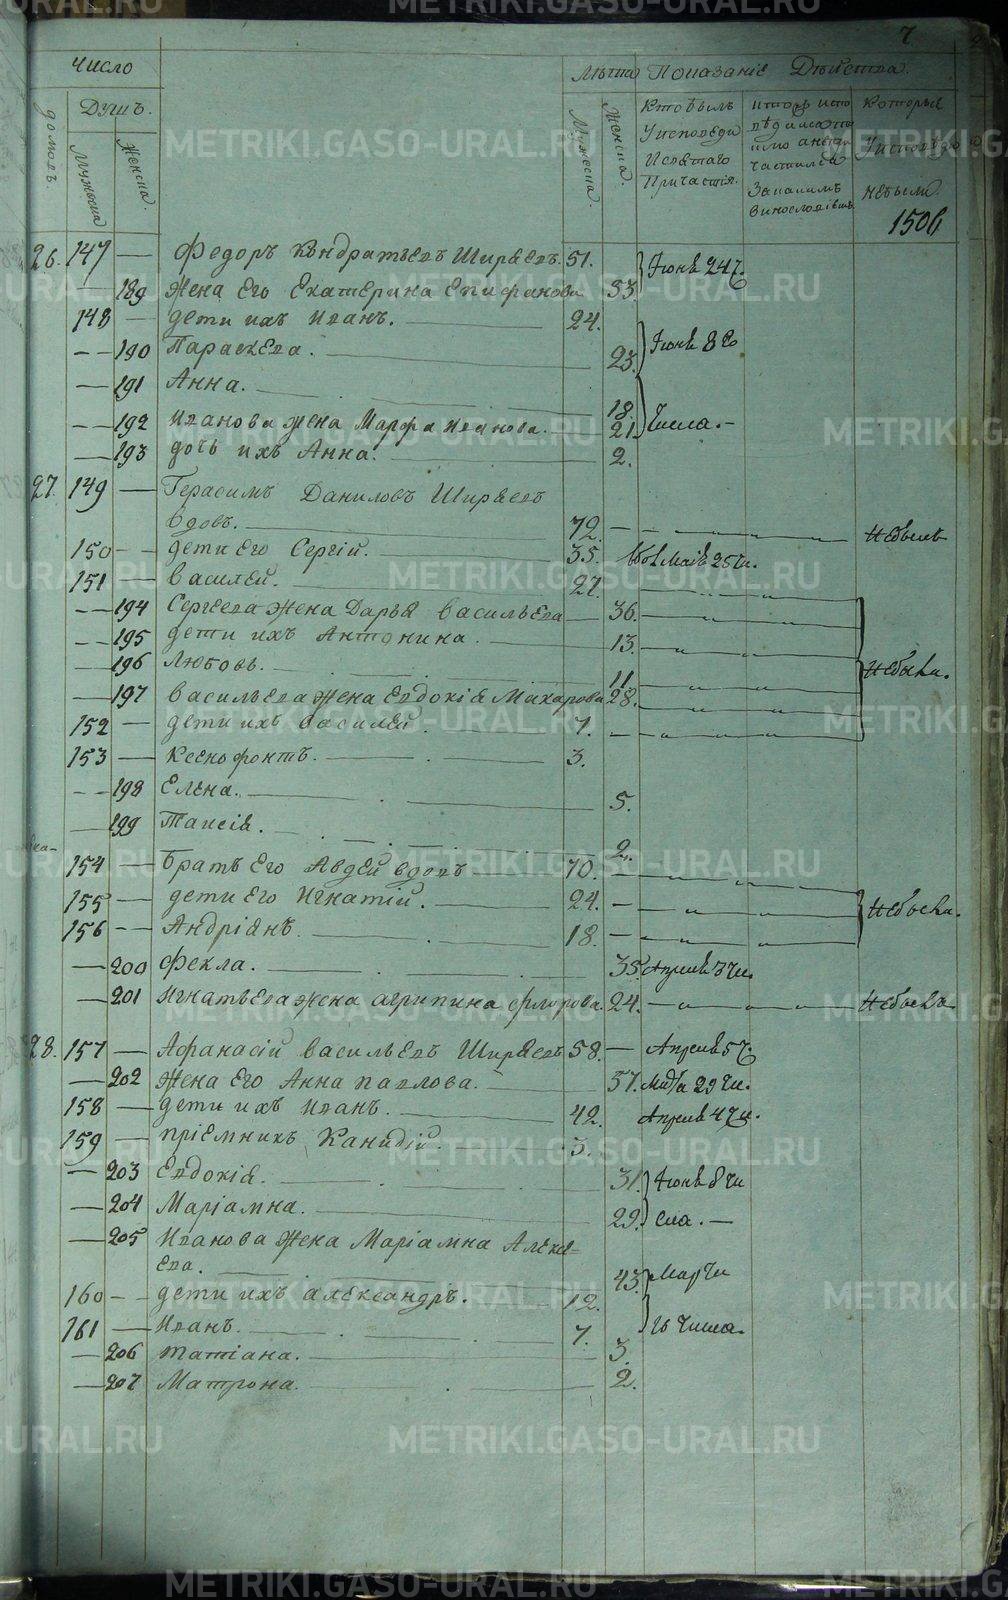 7
Число
Лѣта Показаніе Дѣйства.
домовъ.
Душъ.
Мужеска
Женска.
Мужеска
Женска.
Кто были
У исповеди
И святаго
Причастія.
Которые
У исповеди
небыли.
150б
26. 147 — Федоръ Кондратьевъ Ширяевъ. 51.
— 189 Жена Его Екатерина Епифанова 53. Іюня 24 ч.
148 — дети ихъ Иванъ. — 24.
— 190 Параскева. — 23. Іюня 8 го
— 191 Анна. — 18.
— 192 Иванова жена Марфа Иванова. 21. Числа. —
— 193 дочь ихъ Анна. — 2.
27. 149 — Герасимъ Даниловъ Ширяевъ
вдовъ. — 72. — Небылъ
150 — дети Его Сергій. — 35. Маія 25 чи.
151 — Василей. — 27.
— 194 Сергеева жена Дарья Васильева — 36.
— 195 дети ихъ Антонина. — 13.
— 196 Любовь. — 11. Небыли.
— 197 Васильева жена Евдокія Макарова 28.
152 — дети ихъ Василей. — 7.
153 — Ксенофонтъ. — 3.
— 198 Елена. — 5.
— 199 Таисія. — 2.
154 — братъ Его Авдей вдовъ — 70.
155 — дети Его Игнатій. — 24. — Небыли.
156 — Андріянъ. — 18.
— 200 Фекла. — 35. Апреля 3 чи.
— 201 Игнатьева жена Агрипина Флорова. 24. — Небыла
28. 157 — Афанасій Васильевъ Ширяевъ 58. — Апреля 5 ч.
— 202 Жена Его Анна Павлова. — 57. Марта 29 чи.
158 — дети ихъ Иванъ. — 42. Апреля 4 чи.
159 — пріемникъ Канидій. — 3.
— 203 Евдокія. — 31. Іюня 8 чи
— 204 Маріамна. — 29. сла. —
— 205 Иванова жена Маріамна Алексѣ-
ева. — 43. Марта
160 — дети ихъ Александръ. — 12.
161 — Иванъ. — 7. Числа.
— 206 Татіана. — 3.
— 207 Матрона. — 2.
METRIKI.GASO-URAL.RU